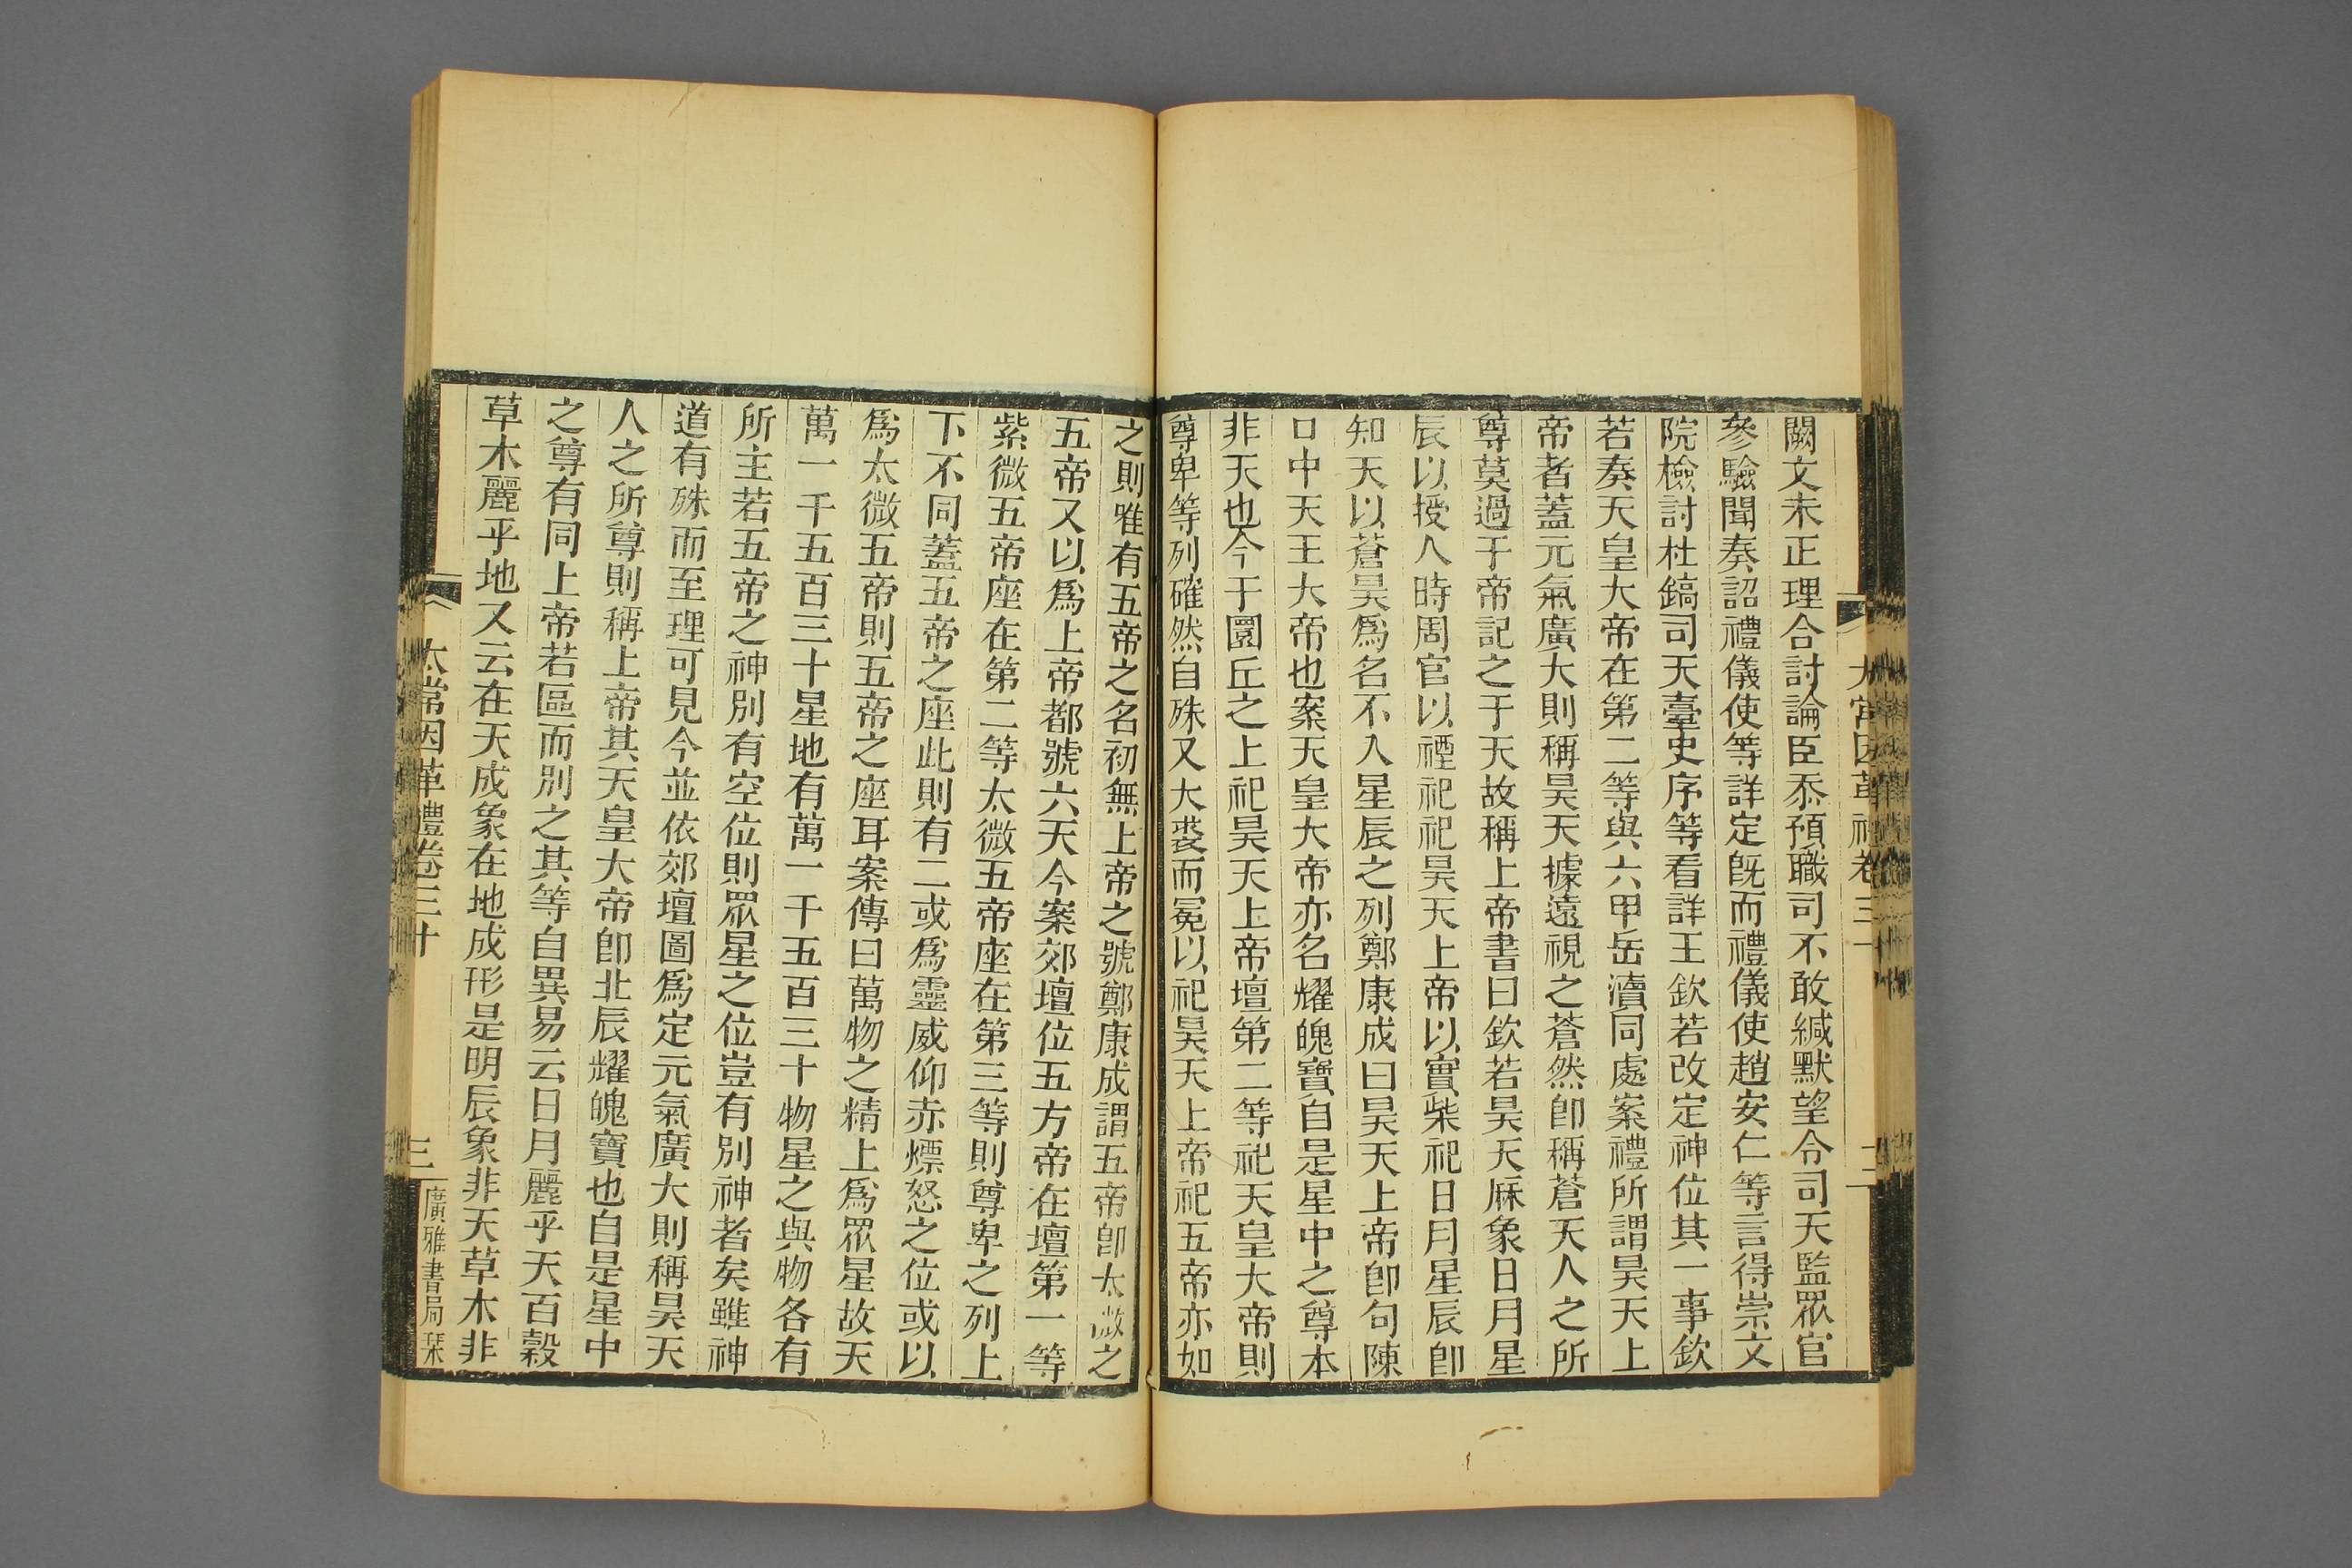 闕文未正理合討論臣忝預職司不敢緘默望令司天監眾官
參驗聞奏詔禮儀使等詳定旣而禮儀使趙安仁等言得崇文
院檢討杜鎬司天臺史序等看詳王欽若改定神位其一事欽
若奏天皇大帝在第二等與六甲岳瀆同處案禮所謂昊天上
帝者蓋元氣廣大則稱昊天據遠視之蒼然卽稱蒼天人之所
尊莫過于帝記之于天故稱上帝書曰欽若昊天厤象日月星
辰以授人時周官以禋祀祀昊天上帝以實柴祀日月星辰卽
知天以蒼昊爲名不入星辰之列鄭康成曰昊天上帝卽句陳
口中天王大帝也案天皇大帝亦名耀魄寶自是星中之尊本
非天也今于圜丘之上祀昊天上帝壇第二等祀天皇大帝則
尊卑等列確然自殊又大裘而冕以祀昊天上帝祀五帝亦如
之則雖有五帝之名初無上帝之號鄭康成謂五帝卽太微之
五帝又以爲上帝都號六天今案郊壇位五方帝在壇第一等
紫微五帝座在第二等太微五帝座在第三等則尊卑之列上
下不同蓋五帝之座此則有二或爲靈威仰赤熛怒之位或以
爲太微五帝則五帝之座耳案傳曰萬物之精上爲眾星故天
萬一千五百三十星地有萬一千五百三十物星之與物各有
所主若五帝之神別有空位則眾星之位豈有別神者矣雖神
道有殊而至理可見今並依郊壇圖爲定元氣廣大則稱昊天
人之所尊則稱上帝其天皇大帝卽北辰耀魄寶也自是星中
之尊有同上帝若區而別之其等自異易云日月麗乎天百穀
草木麗乎地又云在天成象在地成形是明辰象非天草木非
太常因革禮卷三十
三
廣雅書局栞